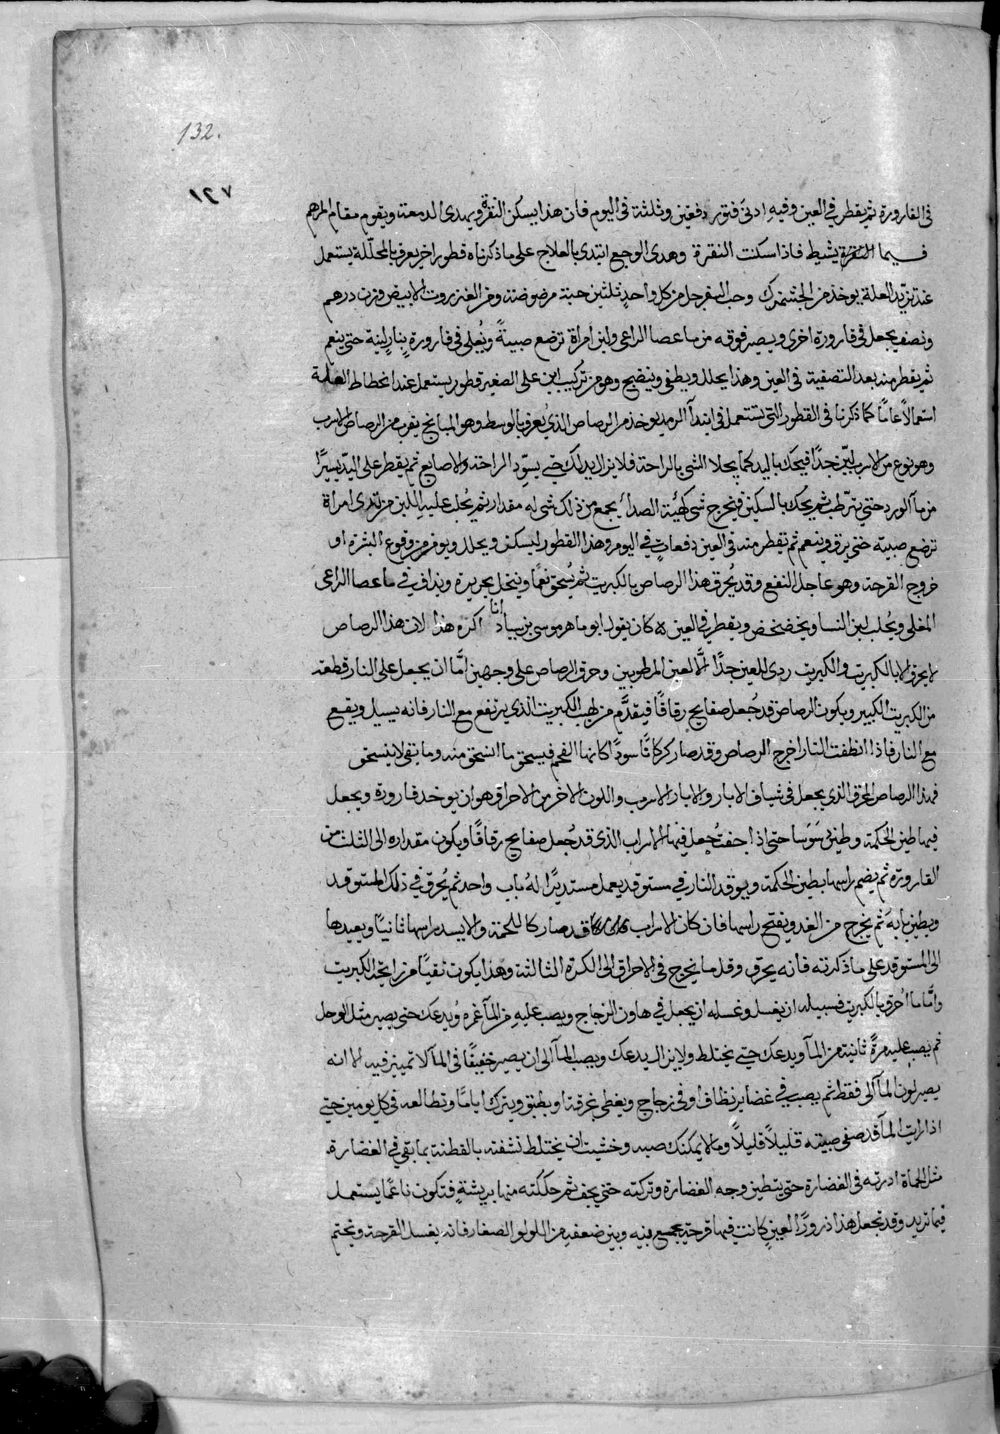 132.
١٢٧
فى القارورة ثم يقطر فى العين وفيه ادنى فتور دفعتين وثلثة فى اليوم فان هذا يسكن النقرة ويهدى الدمعة ويقوم مقام المرهم
فيما النقرة يشيط فاذا سكنت النقرة وهدى الوجع ابتدى بالعلاج على ما ذكرناه قطور اخر يعرف بالمحللة يستعمل
عند تزيد العلة يوخذ من الجشمزك وحب السفرجل من كل واحد ثلثين حبة مرضوضة ومن العنزروت الابيض وزن درهم
ونصف يجعل فى قارورة اخرى ويصير فوقه من ما عصا الراعى ولبن امراة ترضع صبية ويُغلى فى قارورة بنار لينة حتى ينعم
ثم يقطر منه بعد التصفية فى العين وهذا يحلل ويطفى وينضج وهو من تركيب ابن على الصغير قطور يستعمل عند انحطاط العلة
استعمالاً عامًا كما ذكرنا فى القطور التى تستعمل فى ابتدآ الرمد يوخذ من الرصاص الذى يعرف بالوسط وهو المبانج يقرب من الرصاص الاسرب
وهو نوع من الاسرب لين جدًا فيحك باليد كما يحلا الشى بالراحة فلا يزال يدلك حتى يسود الراحة والاصابع ثم يقطر على اليد يسيرًا
من مآ الورد حتى يترطب ثم يحك بالسكين فيخرج شى كهيئة الصدأ يجمع من ذلك شى له مقدار ثم يُحلب عليه اللبن من ثدى امراة
ترضع صبية حتى يرق وينعم ثم تقطر منه فى العين دفعات فى اليوم وهذا القطور ليسكن ويحلل ويومن من وقوع البثرة او
خروج القرحة وهو عاجل النفع وقد يُحرق هذا الرصاص بالكبريت ثم يُسحق نعمًا وينخل بحريرة ويذاف فى ما عصا الراعى
المغلى ويُحلب لبن النسا ويخضخض ويقطر فى العين ه كان يقول ابو ماهر موسى بن سيار انا اكره هذا لان هذا الرصاص
لا يحرق الا بالكبريت والكبريت ردى للعين جدًا الا لعين المرطوبين وحرق الرصاص على وجهين اما ان يجعل على النار قطعة
من الكبريت الكبير ويكون الرصاص قد جُعل صفايح رقاقًا فيقدم من لهب الكبريت الذى يرتفع مع النار فانه يسيل ويقع
مع النار فاذا انطفت النار اخرج الرصاص وقد صار كركاتًا سودًا كانها الفحم فيسحق ما انسحق منه وما بقى لا ينسحق
فهذا الرصاص المحرق الذى يجعل فى شياف الابار والابار الاسرب واللون الاخر من الاحراق هو ان يوخذ قارورة ويجعل
فيها طين الحكمة وطين سوسا حتى اذا جفت جُعل فيها الاسراب الذى قد جُعل صفايح رقاقًا ويكون مقداره الى الثلث من
القارورة ثم يضم راسها بطين الحكمة ويوقد النار فى مستوقد يعمل مستديرًا له باب واحد ثم يُحرق فى ذلك المستوقد
ويطين بابه ثم يخرج من الغد ويفتح راسها فان كان الاسراب قد صار كاللحمة والا يسد راسها ثانيًا ويعيدها
الى المستوقد على ما ذكرته فانه يحرق وقل ما يخرج فى الاحراق الى الكرة الثالثة وهذا يكون نقيًا من رايحة الكبريت
واما ما احرق بالكبريت فسبيله ان يغسل وغسله ان يجعل فى هاون الزجاج ويصب عليه من المآ غمره ويدعك حتى يصير مثل الوحل
ثم يصب عليه مرة ثانية من المآ ويدعك حتى يختلط ولا يزال يدعك ويصب المآ الى ان يصير خفيفًا فى المآ لا تميز فيه الا انه
يصير لون المآ الى فقط ثم يصب فى غضاير نظاف او فى زجاج ويغطى بخرقة او بطبق ويترك اياما وتطالعه فى كل يومين حتى
اذا رايت المآ قد صفى صببته قليلاً قليلاً وما لا يمكنك صبه وخشيت ان يختلط نشفته بالقطنة بما بقى فى الغضارة
مثل الحماة ادرته فى الغضارة حتى يتطين وجه الغضارة وتركته حتى يجف ثم حككته منها بريشة فتكون ناعمًا يستعمل
فيما تريد وقد تجعل هذا ذرورًا لعين كانت فيها قرحة يجمع فيه وبين ضعفه من اللولو الصغار فانه يغسل القرحة ويختم